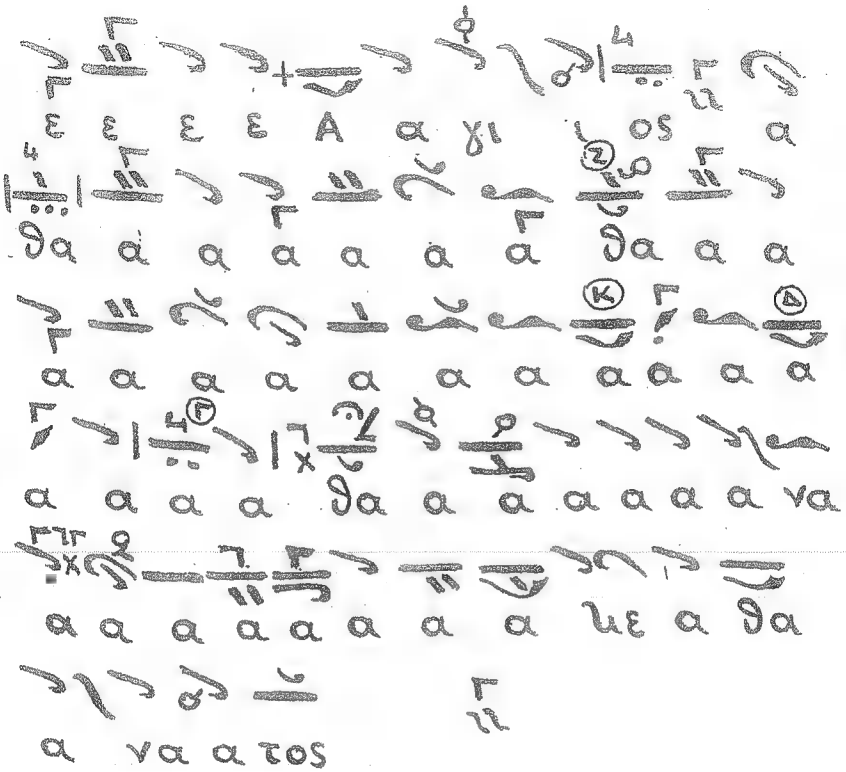 ε ε ε ε Α α γι ος α
θα α α α α α α θα α α
α α α α α α α α α α α
α α α α θα α α α α α α να
α α α α α α α α και α θα
α να α τος